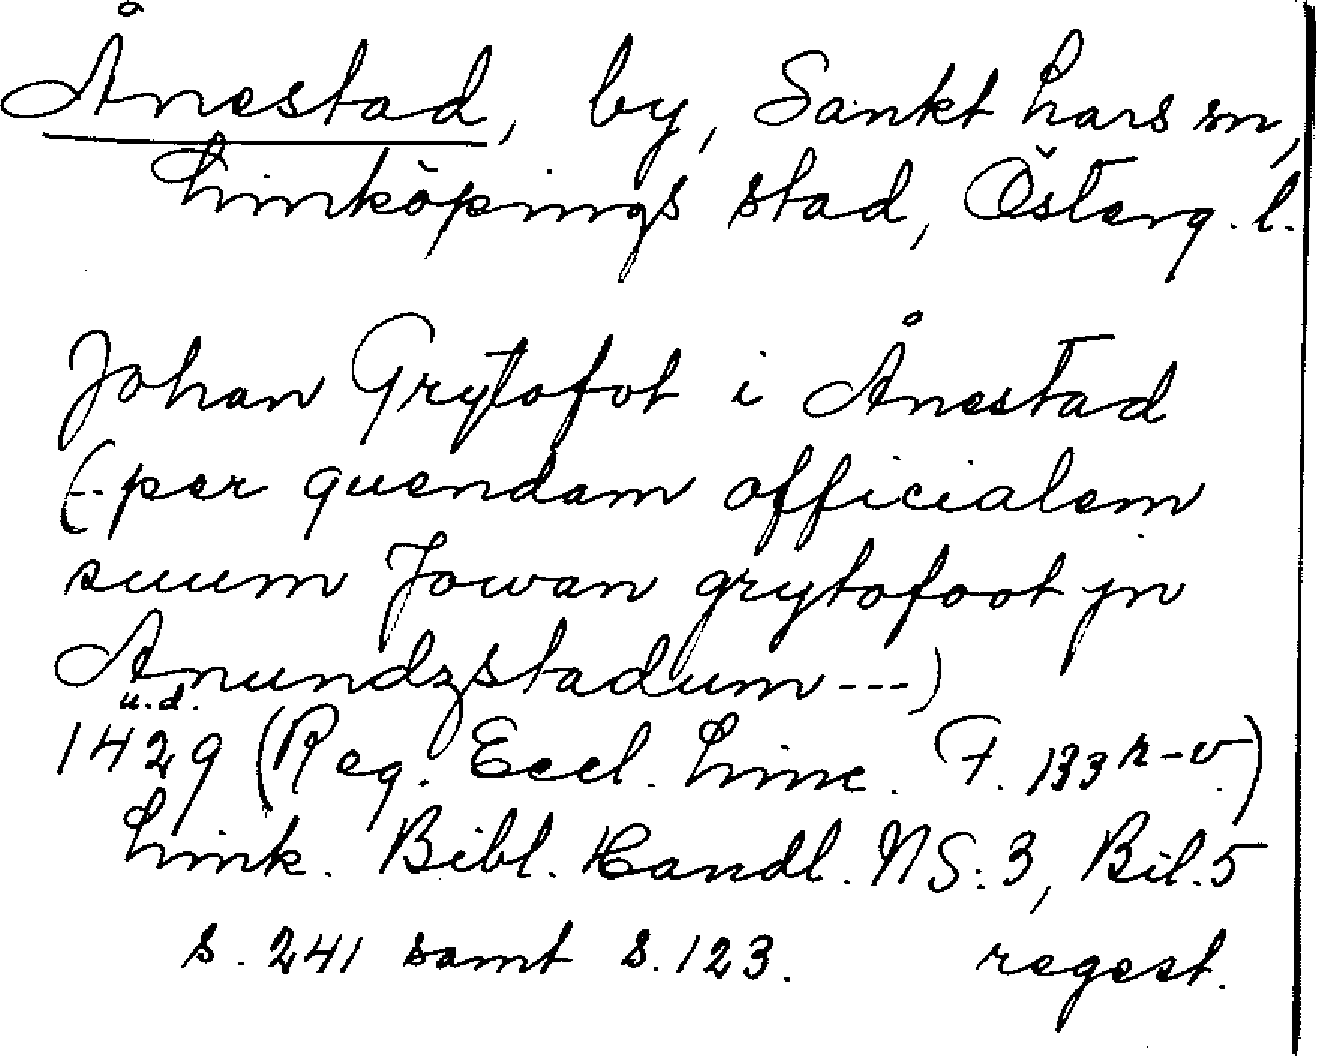 Ånestad, by, Sankt Lars sn,
Linköpings stad, Österg. l.
Johan Grytofot i Ånestad
(-- per quendam officialem
suum Jowan grytofoot jn
Anundzstadum ---)
u.d.
1429 (Reg. Eccl. Linc. F. 133 r-v.)
Link. Bibl. Handl. NS. 3, Bil. 5
s. 241 samt s. 123. regest.